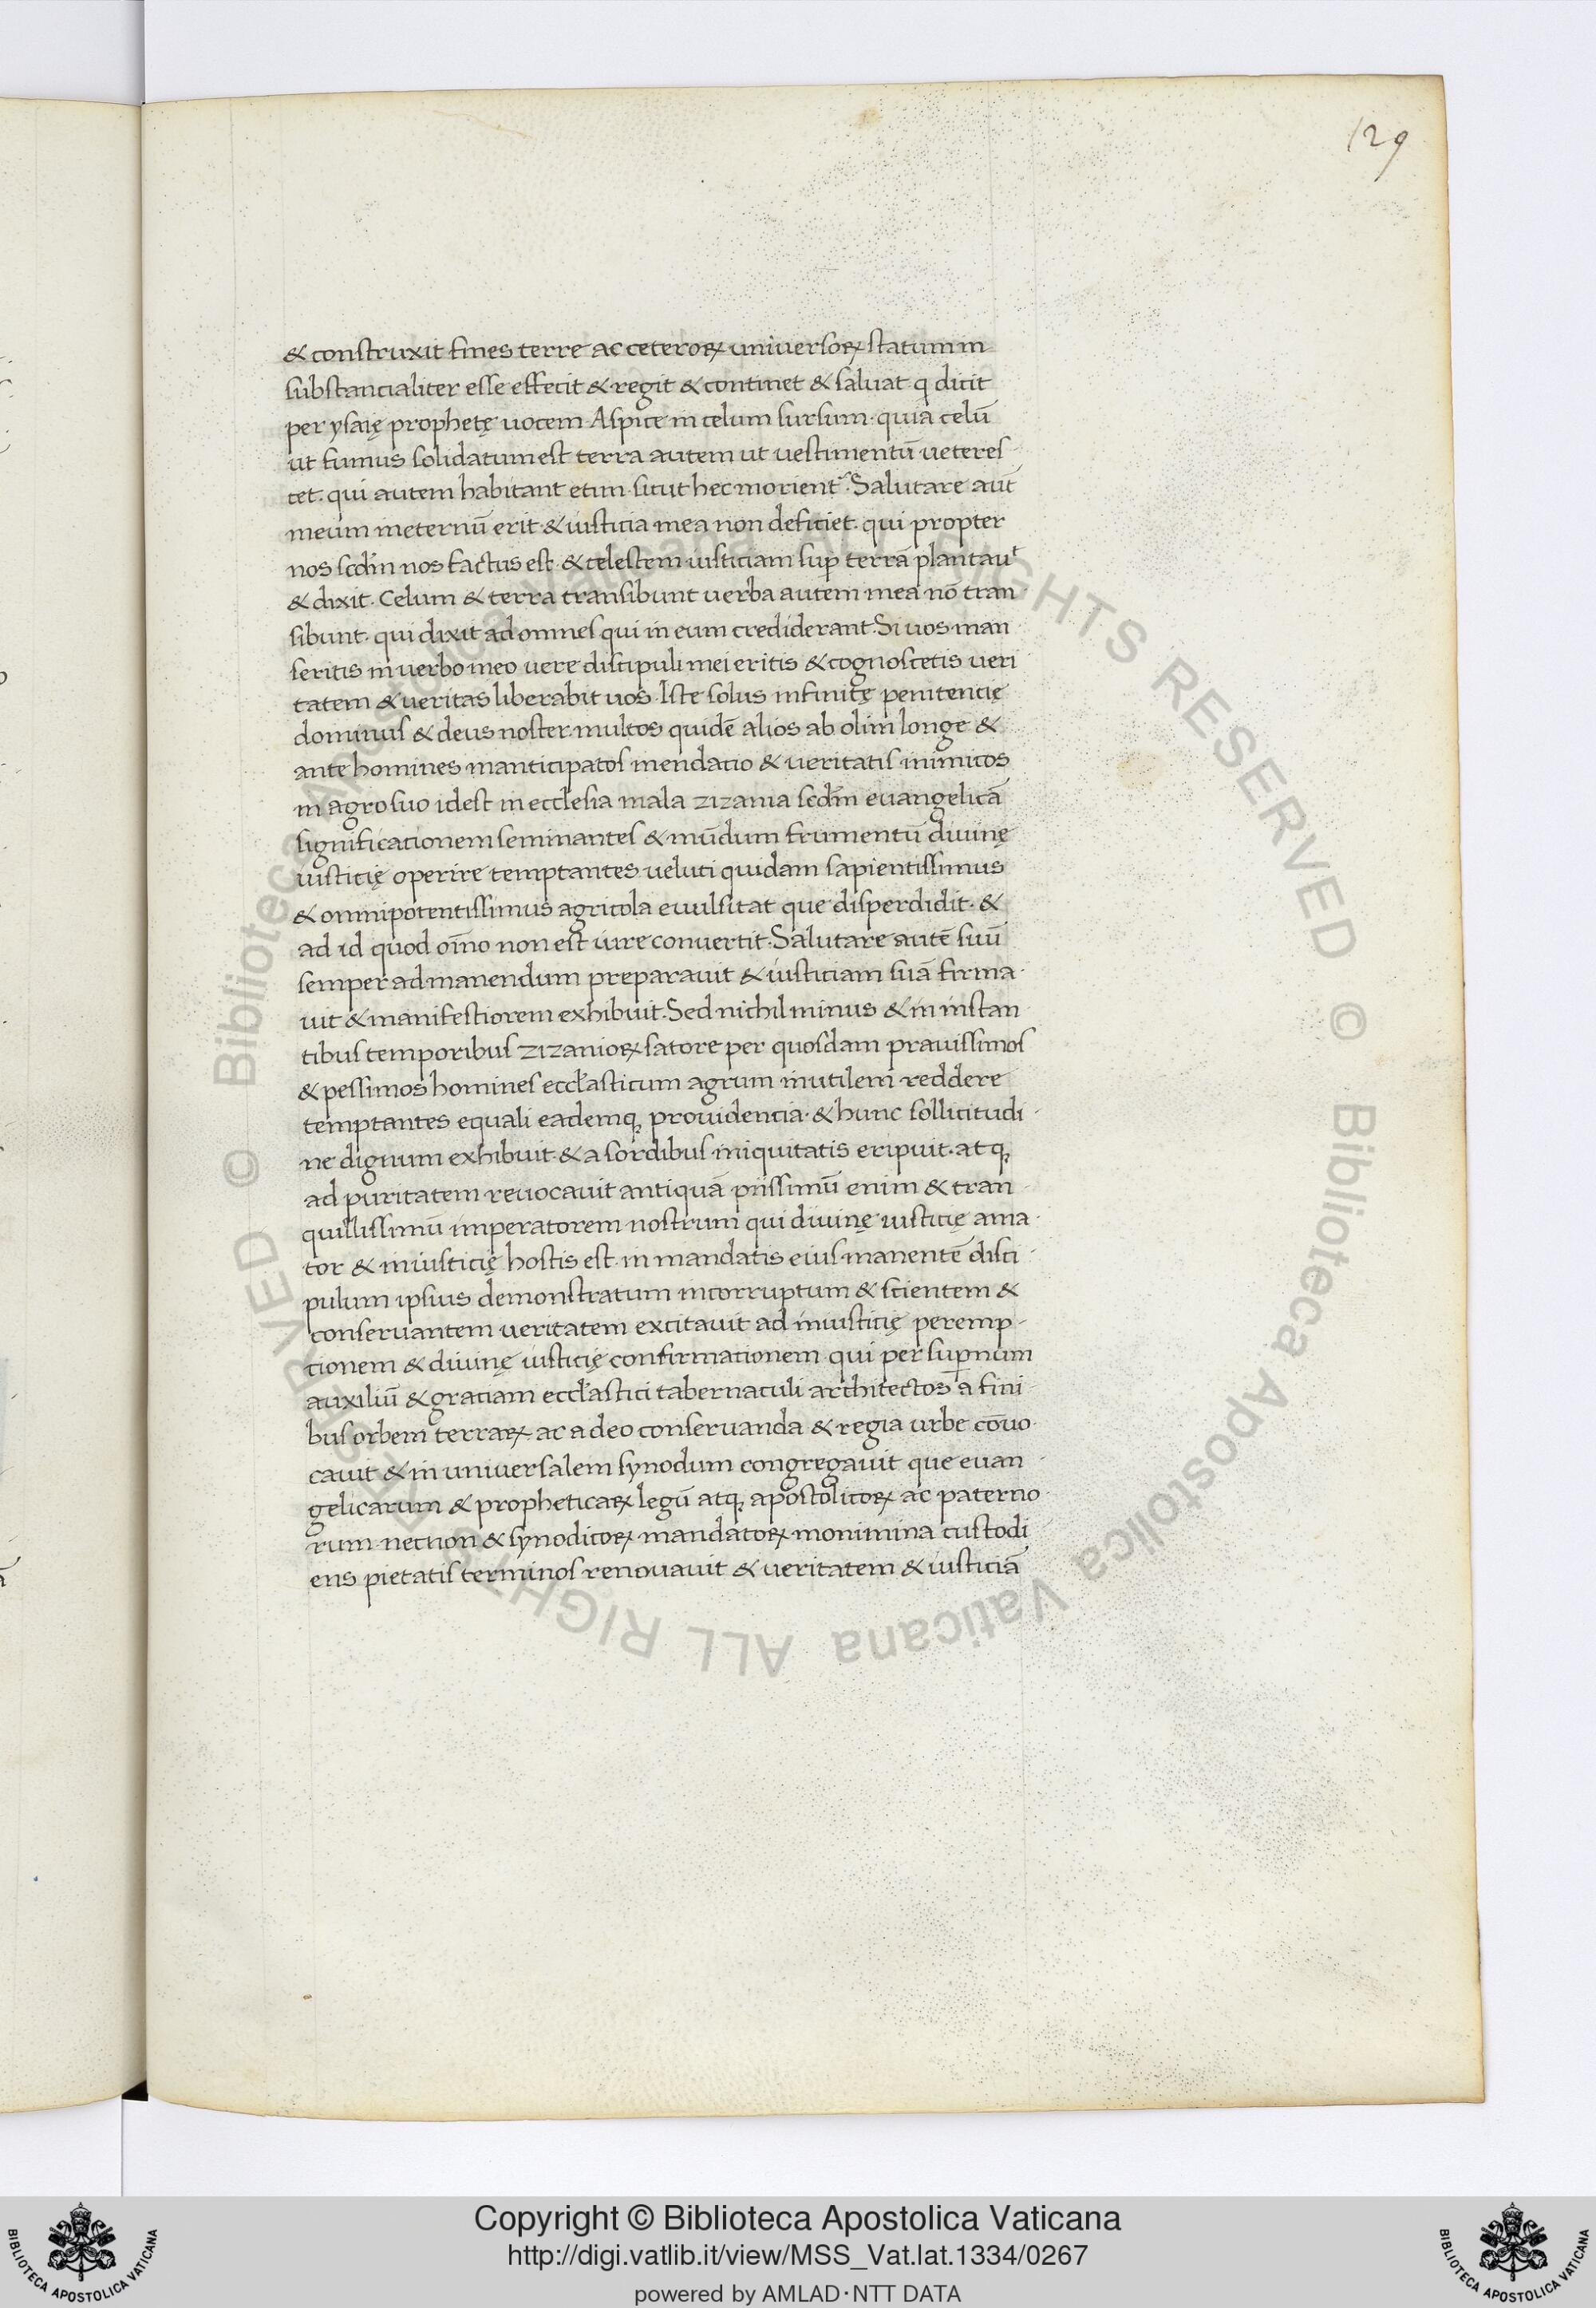 129
& construxit fines terre ac ceteroꝝ universoꝝ statum in
substancialiter esse effecit & regit & continet & saluat q dicit
per ysaię prophetę uocem Aspice in celum sursum· quia celū
ut fumus solidatum est terra autem ut uestimentū ueteres
cet· qui autem habitant etim sicut hec morient᷑· Salutare aut̄
meum in eternū erit & iusticia mea non deficiet· qui propter
nos scdm̄ nos factus est & celestem iusticiam sup̄ terrā plantauᵗ
& dixit· Celum & terra transibunt uerba autem mea nō tran
sibunt· qui dixit ad omnes qui in eum crediderant Si uos man
seritis in uerbo meo uere discipuli mei eritis & cognoscetis ueri
tatem & ueritas liberabit uos· Iste solus infinitę penitencię
dominus & deus noster multos quidē alios ab olim longe &
ante homines manticipatos mendacio & ueritatis inimicos
in agro suo idest in ecclesia mala zizania scdm̄ euangelicā
significationem seminantes & mūdum frumentū diuinę
iusticię operire temptantes ueluti quidam sapientissimus
& omnipotentissimus agricola euulsit at que disperdidit· &
ad id quod oīno non est iure conuertit· Salutare autē suū
semper ad manendum preparauit & iusticiam suā firma·
uit & manifestiorem exhibuit· Sed nichil minus & in instan
tibus temporibus zizanioꝝ satore per quosdam prauissimos
& pessimos homines eccl̄asticum agrum inutilem reddere
temptantes equali eademq; prouidencia· & hunc sollicitudi·
ne dignum exhibuit· & a sordibus iniquitatis eripuit· atq;
ad puritatem reuocauit antiquā piissimū enim & tran
quillissimū imperatorem nostrum qui diuinę iusticię ama·
tor & iniusticię hostis est in mandatis eius manentē disci·
pulum ipsius demonstratum incorruptum & scientem &
conseruantem ueritatem excitauit ad iniusticię peremp·
cionem & diuinę iusticię confirmationem qui per sup̄num
auxiliū & graciam eccl̄astici tabernaculi architectos a fini
bus orbem terraꝝ ac a deo conseruanda & regia urbe cōuo·
cauit & in uniuersalem synodum congregauit que euan·
gelicarum & propheticaꝝ legū atq; apostolicoꝝ ac paterno
rum necnon & synodicoꝝ mandatoꝝ monimina custodi
ens pietatis terminos renouauit & ueritatem & iusticiā
© Biblioteca Apostolica Vaticana ALL RIGHTS RESERVED © Biblioteca Apostolica Vaticana ALL RIGHTS RESERVED
Copyright © Biblioteca Apostolica Vaticana
http://digi.vatlib.it/view/MSS_Vat.lat.1334/0267
powered by AMLAD·NTT DATA
BIBLIOTECA APOSTOLICA VATICANA
BIBLIOTECA APOSTOLICA VATICANA